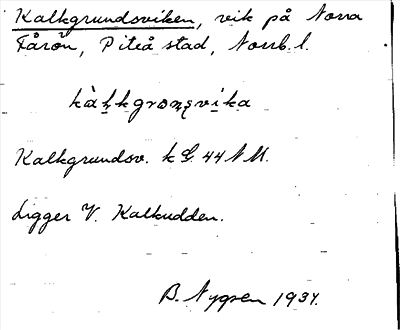 Kalkgrundsviken, vik på Norra
Fårön, Piteå stad, Norrb. l.
kàḷkgronsvika
Kalkgrundsv. k G. 44 NM.
Ligger V. Kalkudden.
B. Nygren 1934.